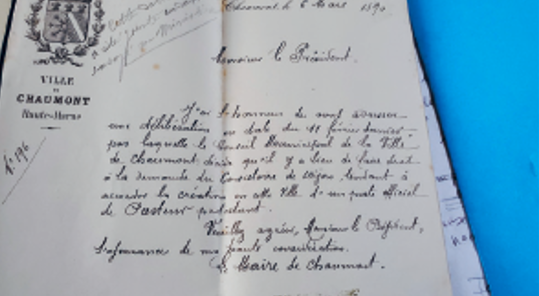 Chaumont, le 6 Mars 1890
VILLE
DE
CHAUMONT
Haute-Marne
N° 196
Monsieur le Président.
J'ai l'honneur de vous adresser
une délibération en date du 11 février dernier
par laquelle le Conseil Municipal de la Ville
de Chaumont décide qu'il y a lieu de faire droit
à la demande du Consistoire de Dijon, tendant à
accorder la création en cette Ville d'un poste officiel
de Pasteur protestant.
Veuillez agréer, Monsieur le Président,
l'assurance de ma haute considération.
Le Maire de Chaumont.